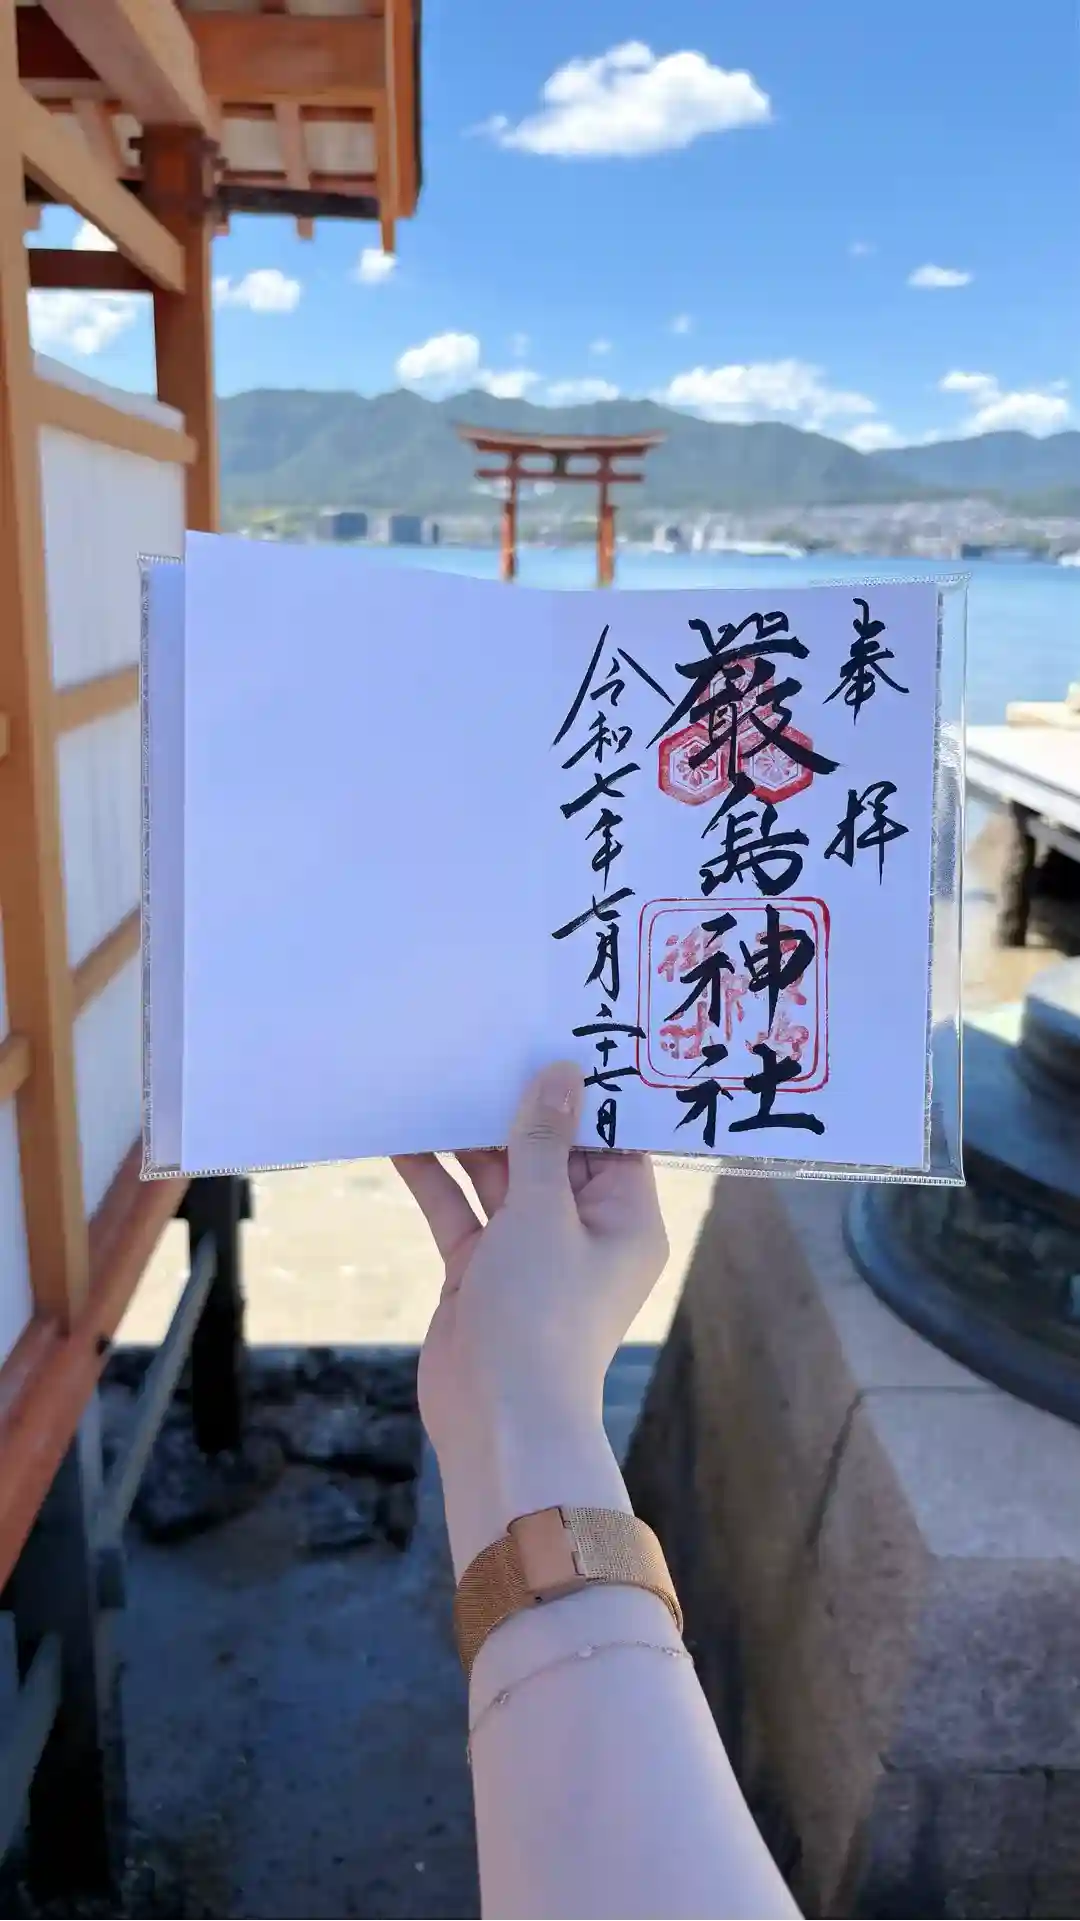 奉拝
嚴島神社
令和七年七月二十七日